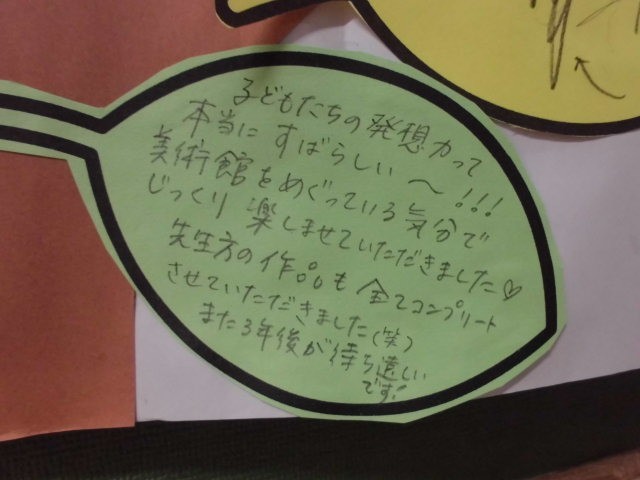 子どもたちの発想力って
本当に すばらしい 〜!!!
美術館をめぐっている気分で
じっくり 楽しませていただきました♡
先生方の作品も 全てコンプリート
させていただきました(笑)
また3年後が待ち遠しい
です!